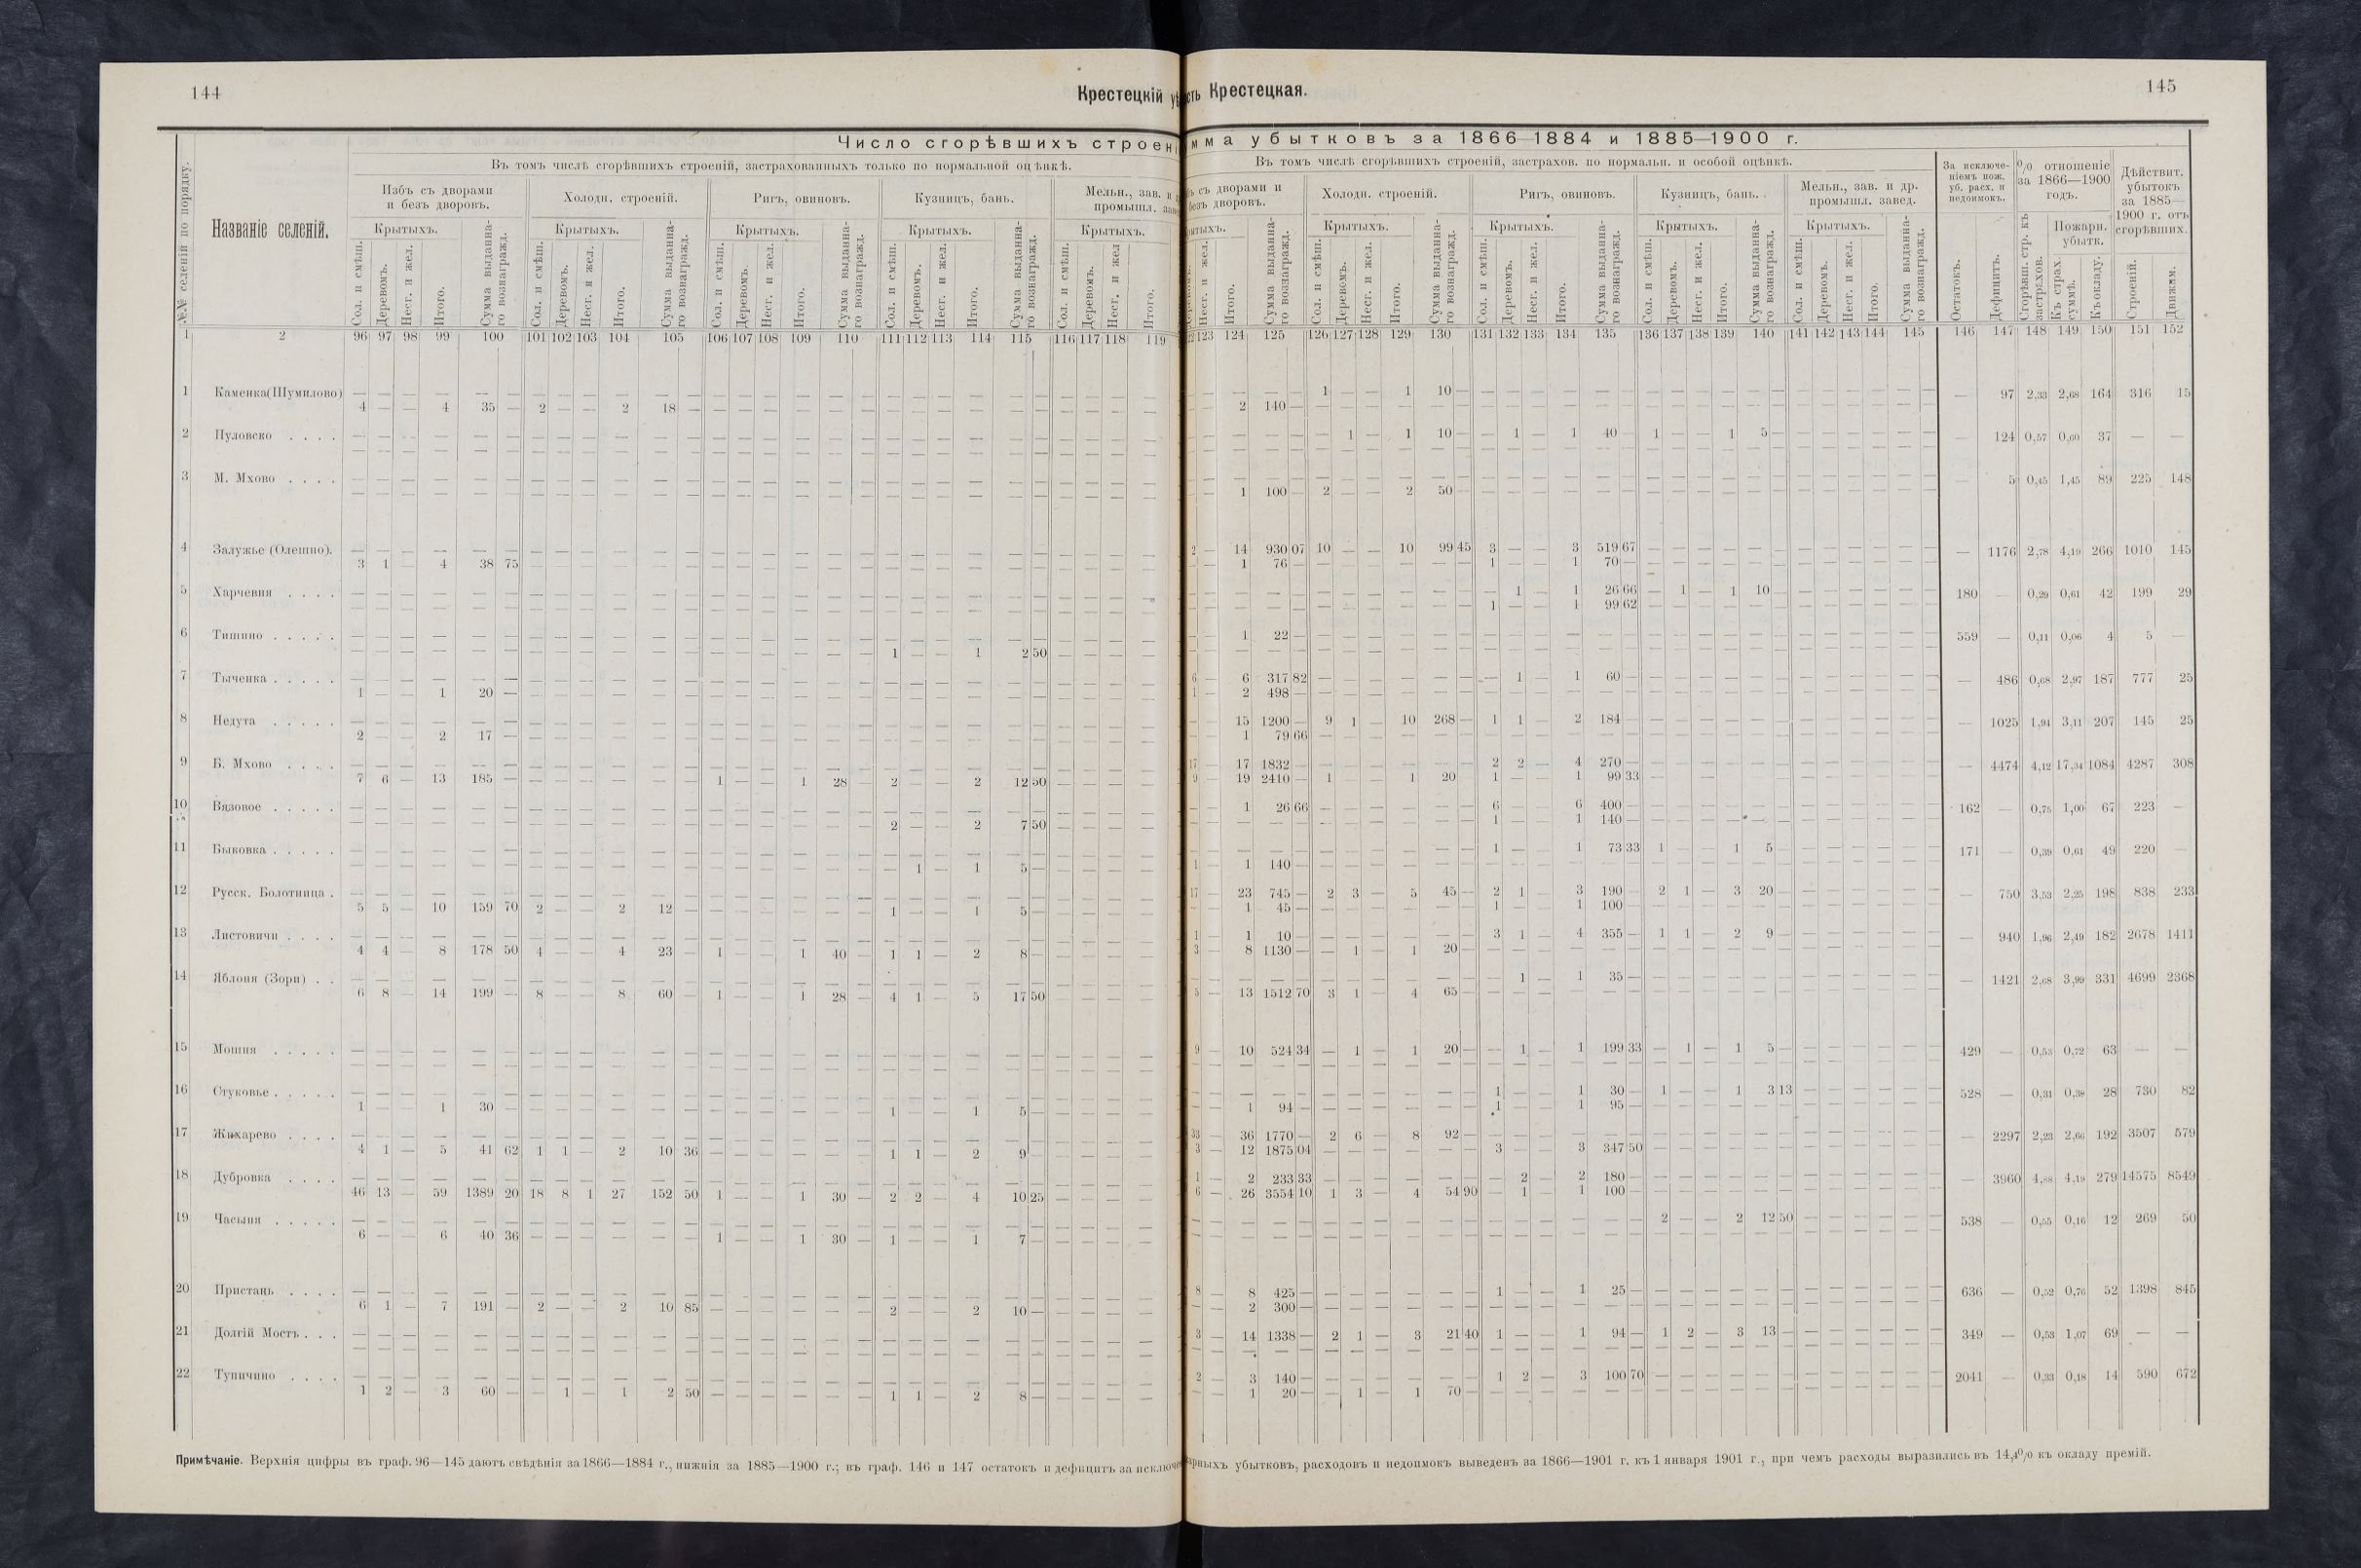 144
Крестецкій уѣ
Число сгорѣвшихъ строен
Въ томъ числѣ сгорѣвшихъ строеній, застрахованныхъ только по нормальной оцѣнкѣ.
№№ селеній по порядку.
Названіе селеній.
Избъ съ дворами и безъ дворовъ.
Холодн. строеній.
Ригъ, овиновъ.
Кузницъ, бань.
Мельн., зав. и
промышл. зав
Крытыхъ. Крытыхъ. Крытыхъ. Крытыхъ. Крытыхъ.
Сол. и смѣш. Деревомъ. Несг. и жел. Итого. Сумма выданнаго вознагражд.
Сол. и смѣш. Деревомъ. Несг. и жел. Итого. Сумма выданнаго вознагражд.
Сол. и смѣш. Деревомъ. Несг. и жел. Итого. Сумма выданнаго вознагражд.
Сол. и смѣш. Деревомъ. Несг. и жел. Итого. Сумма выданнаго вознагражд.
Сол. и смѣш. Деревомъ. Несг. и жел Итого.
1 2 96 97 98 99 100 101 102 103 104 105 106 107 108 109 110 111 112 113 114 115 116 117 118 119
1 Каменка(Шумилово) — — — — — — — — — — — — — — — — — — — — — — — —
4 — — 4 35 — 2 — — 2 18 — — — — — — — — — — — — — — — — —
2 Пуловско . . . . — — — — — — — — — — — — — — — — — — — — — — — —
3 М. Мхово . . . . — — — — — — — — — — — — — — — — — — — — — — — —
4 Залужье (Олешно). — — — — — — — — — — — — — — — — — — — — — — — —
3 1 — 4 38 75 — — — — — — — — — — — — — — — — — — — — — —
5 Харчевня . . . . — — — — — — — — — — — — — — — — — — — — — — — —
6 Тишино . . . . . — — — — — — — — — — — — — — — — — — — — — — — —
— — — — — — — — — — — — — — — — — — 1 — — 1 2 50 — — — —
7 Тыченка . . . . . — — — — — — — — — — — — — — — — — — — — — — — —
1 — — 1 20 — — — — — — — — — — — — — — — — — — — — — — —
8 Недута . . . . . — — — — — — — — — — — — — — — — — — — — — — — —
2 — — 2 17 — — — — — — — — — — — — — — — — — — — — — — —
9 Б. Мхово . . . . — — — — — — — — — — — — — — — — — — — — — — — —
7 6 — 13 185 — — — — — — — 1 — — 1 28 — 2 — — 2 12 50 — — — —
10 Вязовое . . . . . — — — — — — — — — — — — — — — — — — — — — — — —
— — — — — — — — — — — — — — — — — — 2 — — 2 7 50 — — — —
11 Быковка . . . . . — — — — — — — — — — — — — — — — — — — — — — — —
— — — — — — — — — — — — — — — — — — — 1 — 1 5 — — — — —
12 Русск. Болотница . — — — — — — — — — — — — — — — — — — — — — — — —
5 5 — 10 159 70 2 — — 2 12 — — — — — — — 1 — — 1 5 — — — — —
13 Листовичи . . . . — — — — — — — — — — — — — — — — — — — — — — — —
4 4 — 8 178 50 4 — — 4 23 — 1 — — 1 40 — 1 1 — 2 8 — — — — —
14 Яблоня (Зори) . . — — — — — — — — — — — — — — — — — — — — — — — —
6 8 — 14 199 — 8 — — 8 60 — 1 — — 1 28 — 4 1 — 5 17 50 — — — —
15 Мошня . . . . . — — — — — — — — — — — — — — — — — — — — — — — —
16 Стуковье . . . . . — — — — — — — — — — — — — — — — — — — — — — — —
1 — — 1 30 — — — — — — — — — — — — — 1 — — 1 5 — — — — —
17 Жихарево . . . . — — — — — — — — — — — — — — — — — — — — — — — —
4 1 — 5 41 62 1 1 — 2 10 36 — — — — — — 1 1 — 2 9 — — — — —
18 Дубровка . . . . — — — — — — — — — — — — — — — — — — — — — — — —
46 13 — 59 1389 20 18 8 1 27 152 50 1 — — 1 30 — 2 2 — 4 10 25 — — — —
19 Часыня . . . . . — — — — — — — — — — — — — — — — — — — — — — — —
6 — — 6 40 36 — — — — — — 1 — — 1 30 — 1 — — 1 7 — — — — —
20 Пристань . . . . — — — — — — — — — — — — — — — — — — — — — — — —
6 1 — 7 191 — 2 — — 2 10 85 — — — — — — 2 — — 2 10 — — — — —
21 Долгій Мостъ . . . — — — — — — — — — — — — — — — — — — — — — — — —
22 Тупичино . . . . — — — — — — — — — — — — — — — — — — — — — — — —
1 2 — 3 60 — — 1 — 1 2 50 — — — — — — 1 1 — 2 8 — — — — —
Примѣчаніе. Верхнія цифры въ граф. 96—145 даютъ свѣдѣнія за 1866—1884 г., нижнія за 1885—1900 г.; въ граф. 146 и 147 остатокъ и дефицитъ за исключе
сть Крестецкая.
145
мма убытковъ за 1866—1884 и 1885—1900 г.
Въ томъ числѣ сгорѣвшихъ строеній, застрахов. по нормальн. и особой оцѣнкѣ.
ъ съ дворами и
безъ дворовъ.
Холодн. строеній.
Ригъ, овиновъ.
Кузницъ, бань.
Мельн., зав. и др. промышл. завед.
За исключеніемъ пож. уб. расх. и недоимокъ.
% отношеніе за 1866—1900 годъ.
Дѣйствит. убытокъ за 1885—1900 г. отъ сгорѣвшихъ.
рытыхъ. Крытыхъ. Крытыхъ. Крытыхъ. Крытыхъ.
Пожарн. убытк.
Несг. и жел. Итого. Сумма выданнаго вознагражд.
Сол. и смѣш. Деревомъ. Несг. и жел. Итого. Сумма выданнаго вознагражд.
Сол. и смѣш. Деревомъ. Несг. и жел. Итого. Сумма выданнаго вознагражд.
Сол. и смѣш. Деревомъ. Несг. и жел. Итого. Сумма выданнаго вознагражд.
Сол. и смѣш. Деревомъ. Несг. и жел. Итого. Сумма выданнаго вознагражд.
Остатокъ. Дефицитъ. Сгорѣвш. стр. къ застрахов. Къ страх. суммѣ. Къ окладу. Строеній. Движим.
123 124 125 126 127 128 129 130 131 132 133 134 135 136 137 138 139 140 141 142 143 144 145 146 147 148 149 150 151 152
— — — — 1 — — 1 10 — — — — — — — — — — — — — — — — — — — — 97 2,33 2,68 164 316 15
— 2 140 — — — — — — — — — — — — — — — — — — — — — — — —
— — — — — 1 — 1 10 — — 1 — 1 40 — 1 — — 1 5 — — — — — — — 124 0,57 0,60 37 — —
— — — — — — — — — — — — — — — — — — — — — — — — — — — 5 0,45 1,45 89 225 148
— 1 100 — 2 — — 2 50 — — — — — — — — — — — — — — — — —
2 — 14 930 07 10 — — 10 99 45 3 — — 3 519 67 — — — — — — — — — — — — 1176 2,78 4,19 266 1010 145
— 1 76 — — — — — — — 1 — — 1 70 — — — — — — — — — — —
— — — — — — — — — — — 1 — 1 26 66 — 1 — 1 10 — — — — — — 180 — 0,29 0,61 42 199 29
— — — — — — — — — — 1 — — 1 99 62 — — — — — — — — — —
— 1 22 — — — — — — — — — — — — — — — — — — — — — — 559 — 0,11 0,06 4 5 —
6 — 6 317 82 — — — — — — — 1 — 1 60 — — — — — — — — — — — — 486 0,68 2,97 187 777 25
1 — 2 498 — — — — — — — — — — — — — — — — — — — — — —
— 15 1200 — 9 1 — 10 268 — 1 1 — 2 184 — — — — — — — — — — — — 1025 1,94 3,11 207 145 25
— 1 79 66 — — — — — — — — — — — — — — — — — — — — —
17 — 17 1832 — — — — — — — 2 2 — 4 270 — — — — — — — — — — — — 4474 4,12 17,34 1084 4287 308
9 — 19 2410 — 1 — — 1 20 — 1 — — 1 99 33 — — — — — — — — — —
— 1 26 66 — — — — — — 6 — — 6 400 — — — — — — — — — — — 162 — 0,75 1,00 67 223 —
— — — — — — — — — — 1 — — 1 140 — — — — — — — — — — —
— — — — — — — — — — 1 — — 1 73 33 1 — — 1 5 — — — — — — 171 — 0,39 0,61 49 220 —
1 — 1 140 — — — — — — — — — — — — — — — — — — — — — —
17 — 23 745 — 2 3 — 5 45 — 2 1 — 3 190 — 2 1 — 3 20 — — — — — — — 750 3,53 2,25 198 838 233
— 1 45 — — — — — — — 1 — — 1 100 — — — — — — — — — — —
1 — 1 10 — — — — — — — 3 1 — 4 355 — 1 1 — 2 9 — — — — — — — 940 1,96 2,49 182 2678 1411
3 — 8 1130 — — 1 — 1 20 — — — — — — — — — — — — — — — —
— — — — — — — — — — — 1 — 1 35 — — — — — — — — — — — — 1421 2,68 3,99 331 4699 2368
5 — 13 1512 70 3 1 — 4 65 — — — — — — — — — — — — — — — —
9 — 10 524 34 — 1 — 1 20 — — 1 — 1 199 33 — 1 — 1 5 — — — — — — 429 — 0,53 0,72 63 — —
— — — — — — — — — — 1 — — 1 30 — 1 — — 1 3 13 — — — — — 528 — 0,31 0,38 28 730 82
— 1 94 — — — — — — — 1 — — 1 95 — — — — — — — — — — —
33 — 36 1770 — 2 6 — 8 92 — — — — — — — — — — — — — — — — — — 2297 2,23 2,66 192 3507 579
3 — 12 1875 04 — — — — — — 3 — — 3 347 50 — — — — — — — — — —
1 — 2 233 33 — — — — — — — 2 — 2 180 — — — — — — — — — — — — 3960 4,88 4,19 279 14575 8549
6 — 26 3554 10 1 3 — 4 54 90 — 1 — 1 100 — — — — — — — — — — —
— — — — — — — — — — — — — — — — 2 — — 2 12 50 — — — — — 538 — 0,55 0,16 12 269 50
8 — 8 425 — — — — — — — 1 — — 1 25 — — — — — — — — — — — 636 — 0,52 0,76 52 1398 845
— 2 300 — — — — — — — — — — — — — — — — — — — — — —
3 — 14 1338 — 2 1 — 3 21 40 1 — — 1 94 — 1 2 — 3 13 — — — — — — 349 — 0,53 1,07 69 — —
2 — 3 140 — — — — — — — 1 2 — 3 100 70 — — — — — — — — — — 2041 — 0,33 0,18 14 590 672
— 1 20 — — 1 — 1 70 — — — — — — — — — — — — — — — —
рныхъ убытковъ, расходовъ и недоимокъ выведенъ за 1866—1901 г. къ 1 января 1901 г., при чемъ расходы выразились въ 14,4% къ окладу премій.